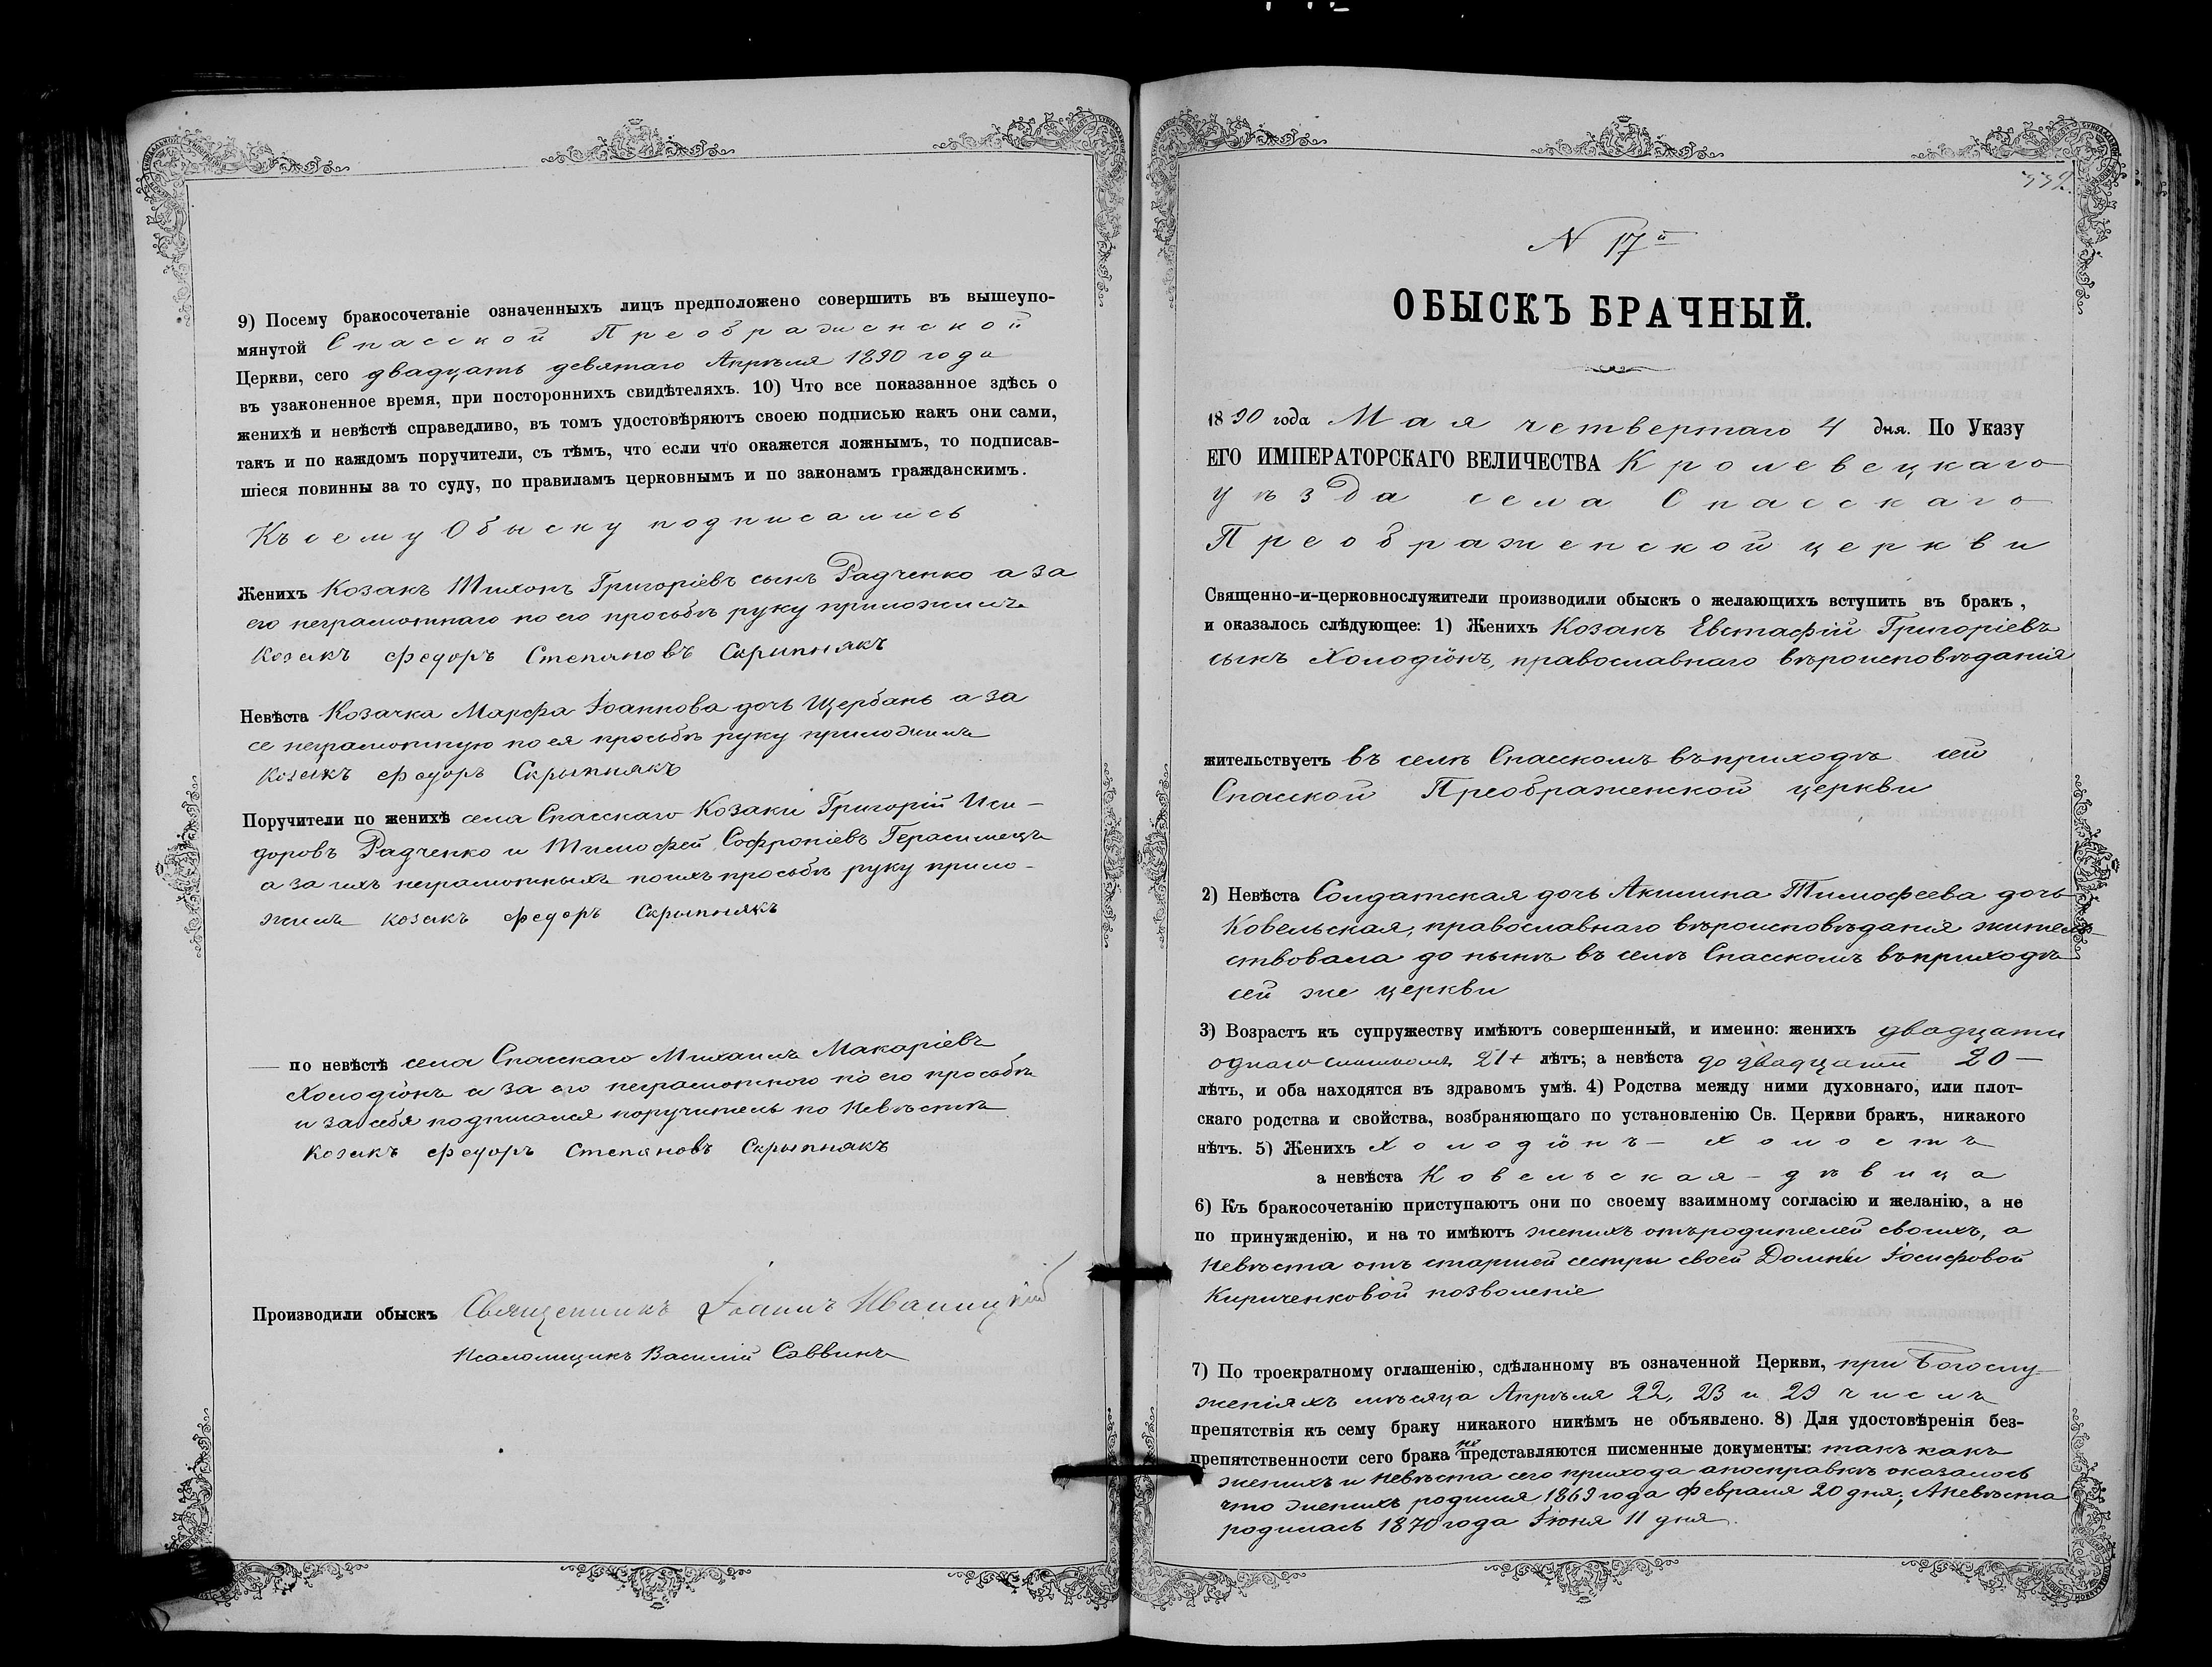 9) Посему бракосочетаніе означенныхъ лицъ предположено совершить въ вышеупо-
мянутой Спасской Преображенской
Церкви, сего двадцать девятаго Апрѣля 1890 года
въ узаконенное время, при постороннихъ свидѣтеляхъ. 10) Что все показанное здѣсь о
женихѣ и невѣстѣ справедливо, въ томъ удостовѣряютъ своею подписью какъ они сами,
такъ и по каждомъ поручители, съ тѣмъ, что если что окажется ложнымъ, то подписав-
шіеся повинны за то суду, по правиламъ церковнымъ и по законамъ гражданскимъ.
Къ сему Обыску подписались
Женихъ Козакъ Тихонъ Григоріевъ сынъ Радченко а за
его неграмотнаго по его просьбѣ руку приложилъ
козакъ Федоръ Степановъ Скрипнякъ
Невѣста Козачка Марфа Іоаннова дочь Щербань а за
ее неграмотную по ея просьбѣ руку приложилъ
козакъ Федоръ Скрыпнякъ
Поручители по женихѣ села Спасскаго Козаки Григорій Иси-
доровъ Радченко и Тимофей Софроніевъ Герасимецъ
а за ихъ неграмотныхъ по ихъ просьбѣ руку прило-
жилъ козакъ Федоръ Скрыпнякъ
по невѣстѣ села Спасскаго Михаилъ Макаріевъ
Холодіонъ а за его неграмотного по его просьбѣ
и за себя подписался поручитель по невѣстѣ
Козакъ Федоръ Степановъ Скрыпнякъ
Производили обыскъ Священникъ Іоаннъ
Псаломщикъ Василій Саввинъ
332.
N 17й
ОБЫСКЪ БРАЧНЫЙ.
1890 года Мая четвертаго 4 дня. По Указу
ЕГО ИМПЕРАТОРСКАГО ВЕЛИЧЕСТВА Кролевецкаго
уѣзда села Спасскаго
Преображенской церкви
Священно-и-церковнослужители производили обыскъ о желающихъ вступить въ бракъ,
и оказалось слѣдующее: 1) Женихъ Козакъ Евстафій Григоріевъ
сынъ Холодіонъ, православнаго вѣроисповѣданія
жительствуетъ въ селѣ Спасскомъ въ приходѣ сей
Спасской Преображенской церкви
2) Невѣста Солдатская дочь Акилина Тимофеева дочь
Ковельская, православнаго вѣроисповѣданія житель-
ствовала до нынѣ въ селѣ Спасскомъ въ приходѣ
сей же церкви
3) Возрастъ къ супружеству имѣютъ совершенный, и именно: женихъ двадцати
одного слишкомъ 21+ лѣтъ; а невѣста до двадцати 20 —
лѣтъ, и оба находятся въ здравомъ умѣ. 4) Родства между ними духовнаго, или плот-
скаго родства и свойства, возбраняющаго по установленію Св. Церкви бракъ, никакого
нѣтъ. 5) Женихъ Холодіонъ — холостъ
а невѣста Ковельская — дѣвица
6) Къ бракосочетанію приступаютъ они по своему взаимному согласію и желанію, а не
по принужденію, и на то имѣютъ женихъ отъ родителей своихъ, а
невѣста отъ старшей сестры своей Домны Іосифовой
Кириченковой позволеніе
7) По троекратному оглашенію, сдѣланному въ означенной Церкви, при Богослу-
женіяхъ мѣсяца Апрѣля 22, 23 и 29 числъ
препятствія къ сему браку никакого никѣмъ не объявлено. 8) Для удостовѣренія без-
препятственности сего брака не представляются писменные документы: такъ какъ
женихъ и невѣста сего прихода а по справкѣ оказалось
что женихъ родился 1869 года Февраля 20 дня; А невѣста
родилась 1870 года Іюня 11 дня.